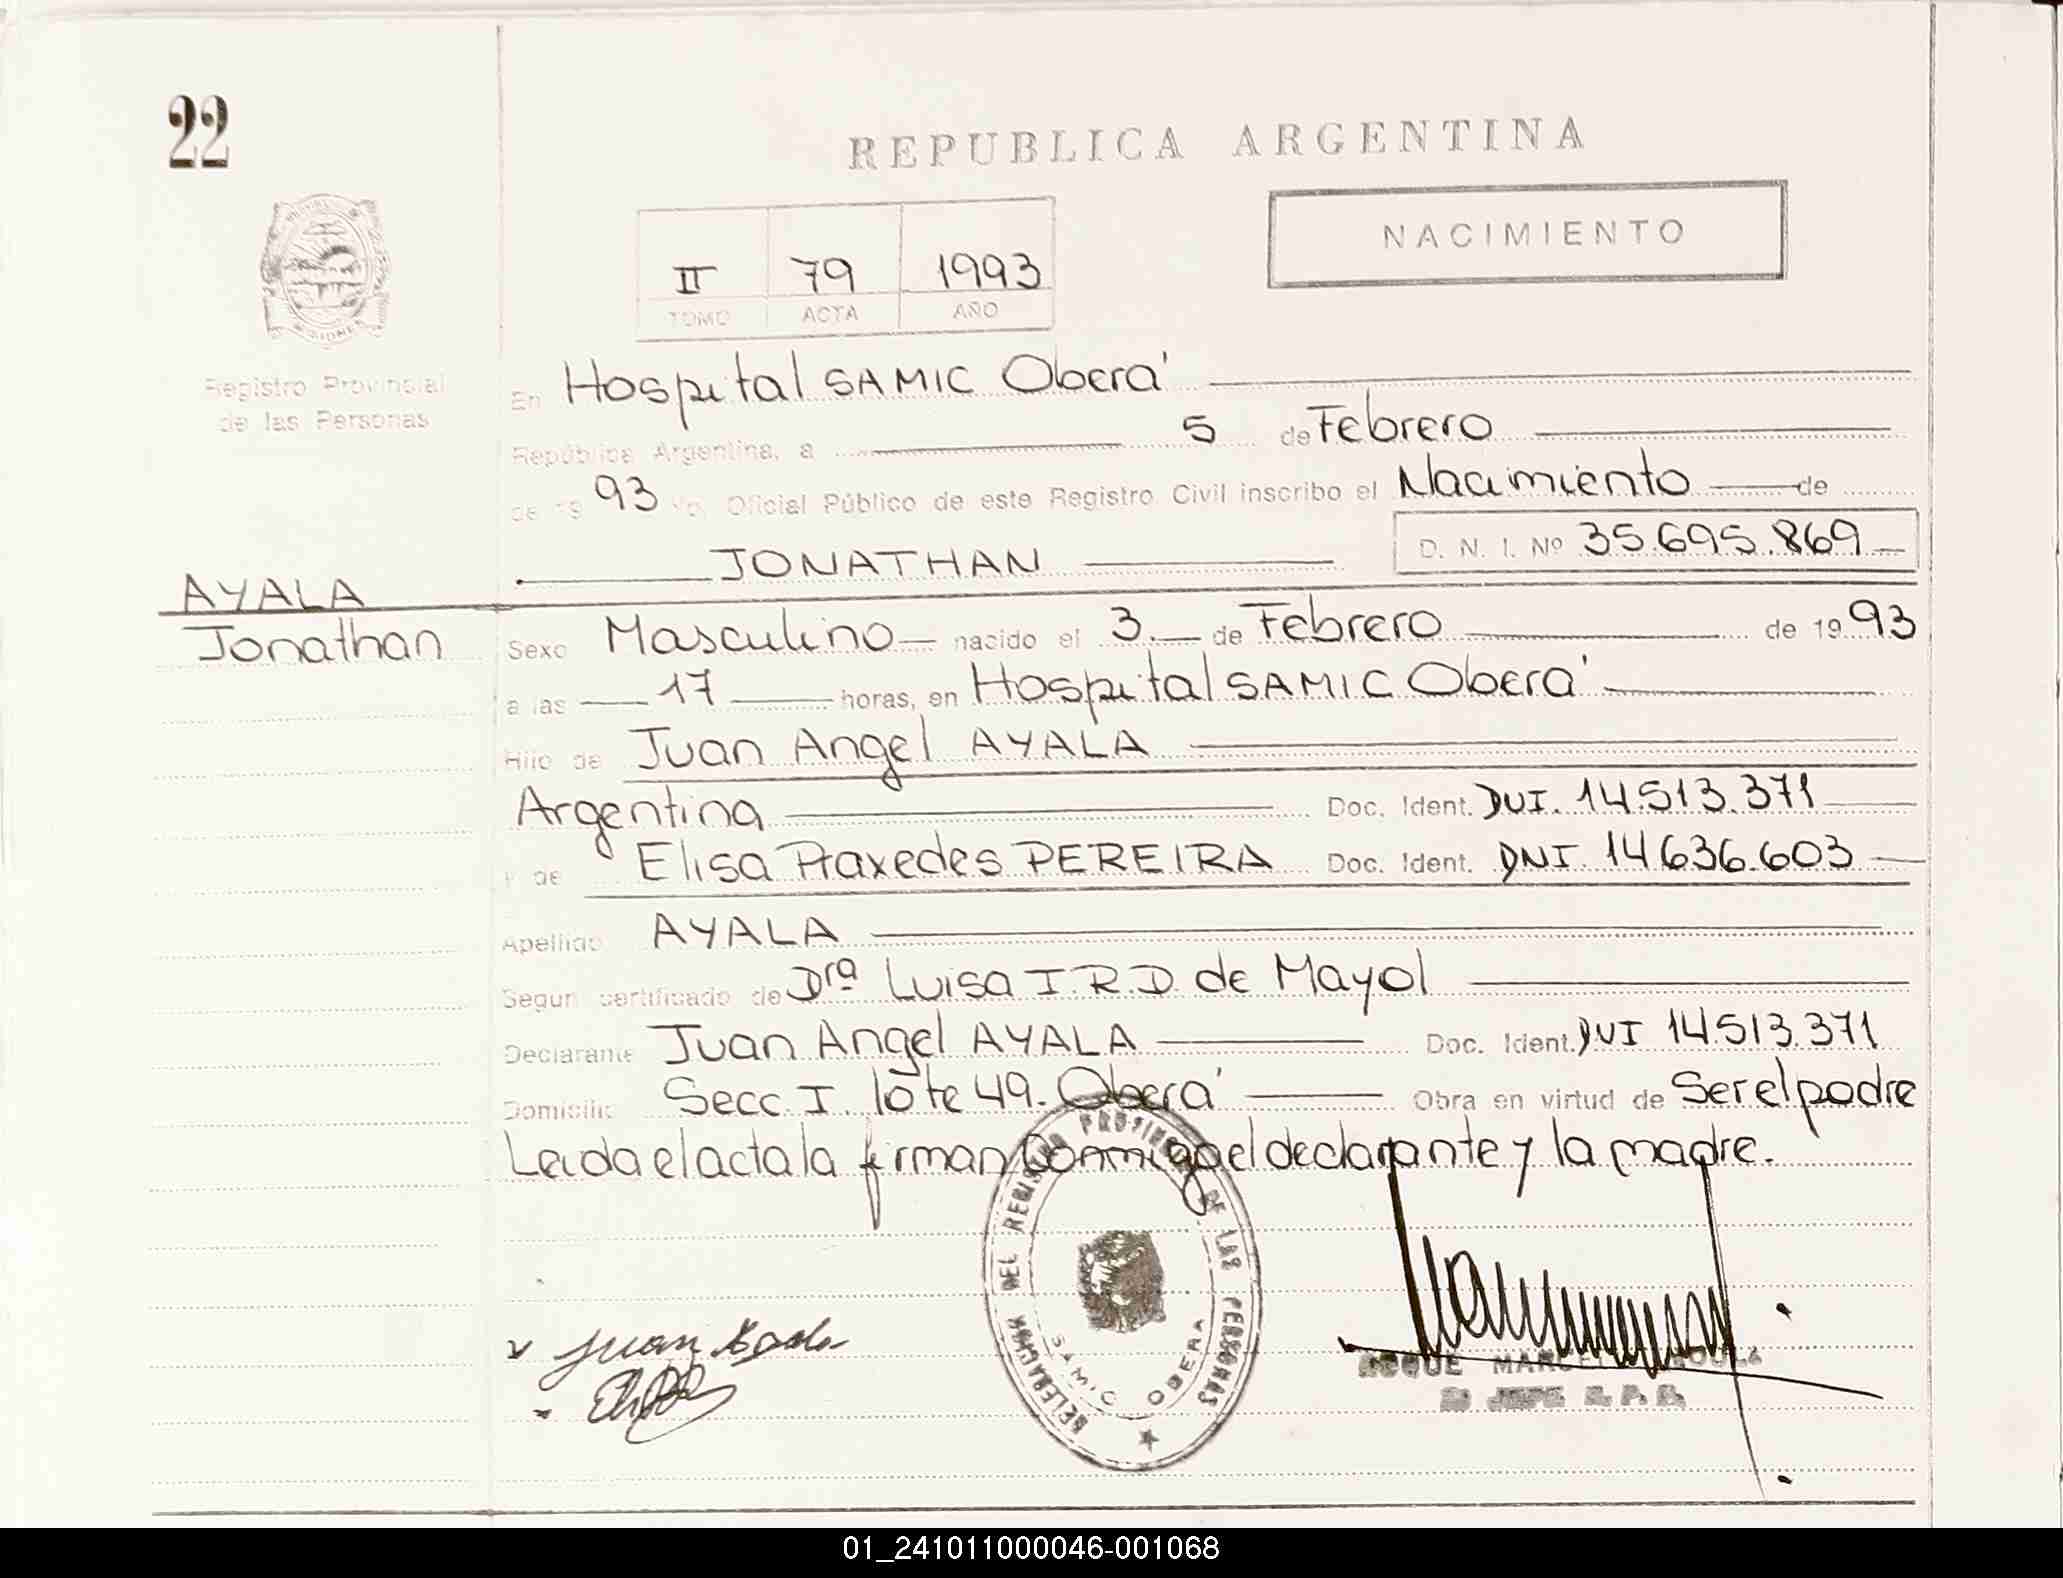 22
REPUBLICA ARGENTINA
NACIMIENTO
II 79 1993
TOMO ACTA AÑO
Registro Provincial
de las Personas
En Hospital SAMIC Oberá
República Argentina, a 5 de Febrero
de 19 93 Yo, Oficial Público de este Registro Civil inscribo el Nacimiento de
JONATHAN D. N. I. Nº 35.695.869
AYALA
Jonathan
Sexo Masculino nacido el 3 de Febrero de 19 93
a las 17 horas, en Hospital SAMIC Oberá
Hijo de Juan Angel AYALA
Argentina Doc. Ident. DUI. 14.513.371
Y de Elisa Praxedes PEREIRA Doc. Ident. DNI. 14636.603
Apellido AYALA
Segun certificado de Drª Luisa I.R.D. de Mayol
Declarante Juan Angel AYALA Doc. Ident. DUI 14.513.371
Domicilio Secc. I lote 49. Oberá Obra en virtud de Ser el padre
Leida el acta la firman Conmigo el declarante y la madre.
DELEGACION DEL REGISTRO PROVINCIAL DE LAS PERSONAS
SAMIC OBERA
Juan Ayala
ROQUE
2º JEFE R. P. P.
01_241011000046-001068